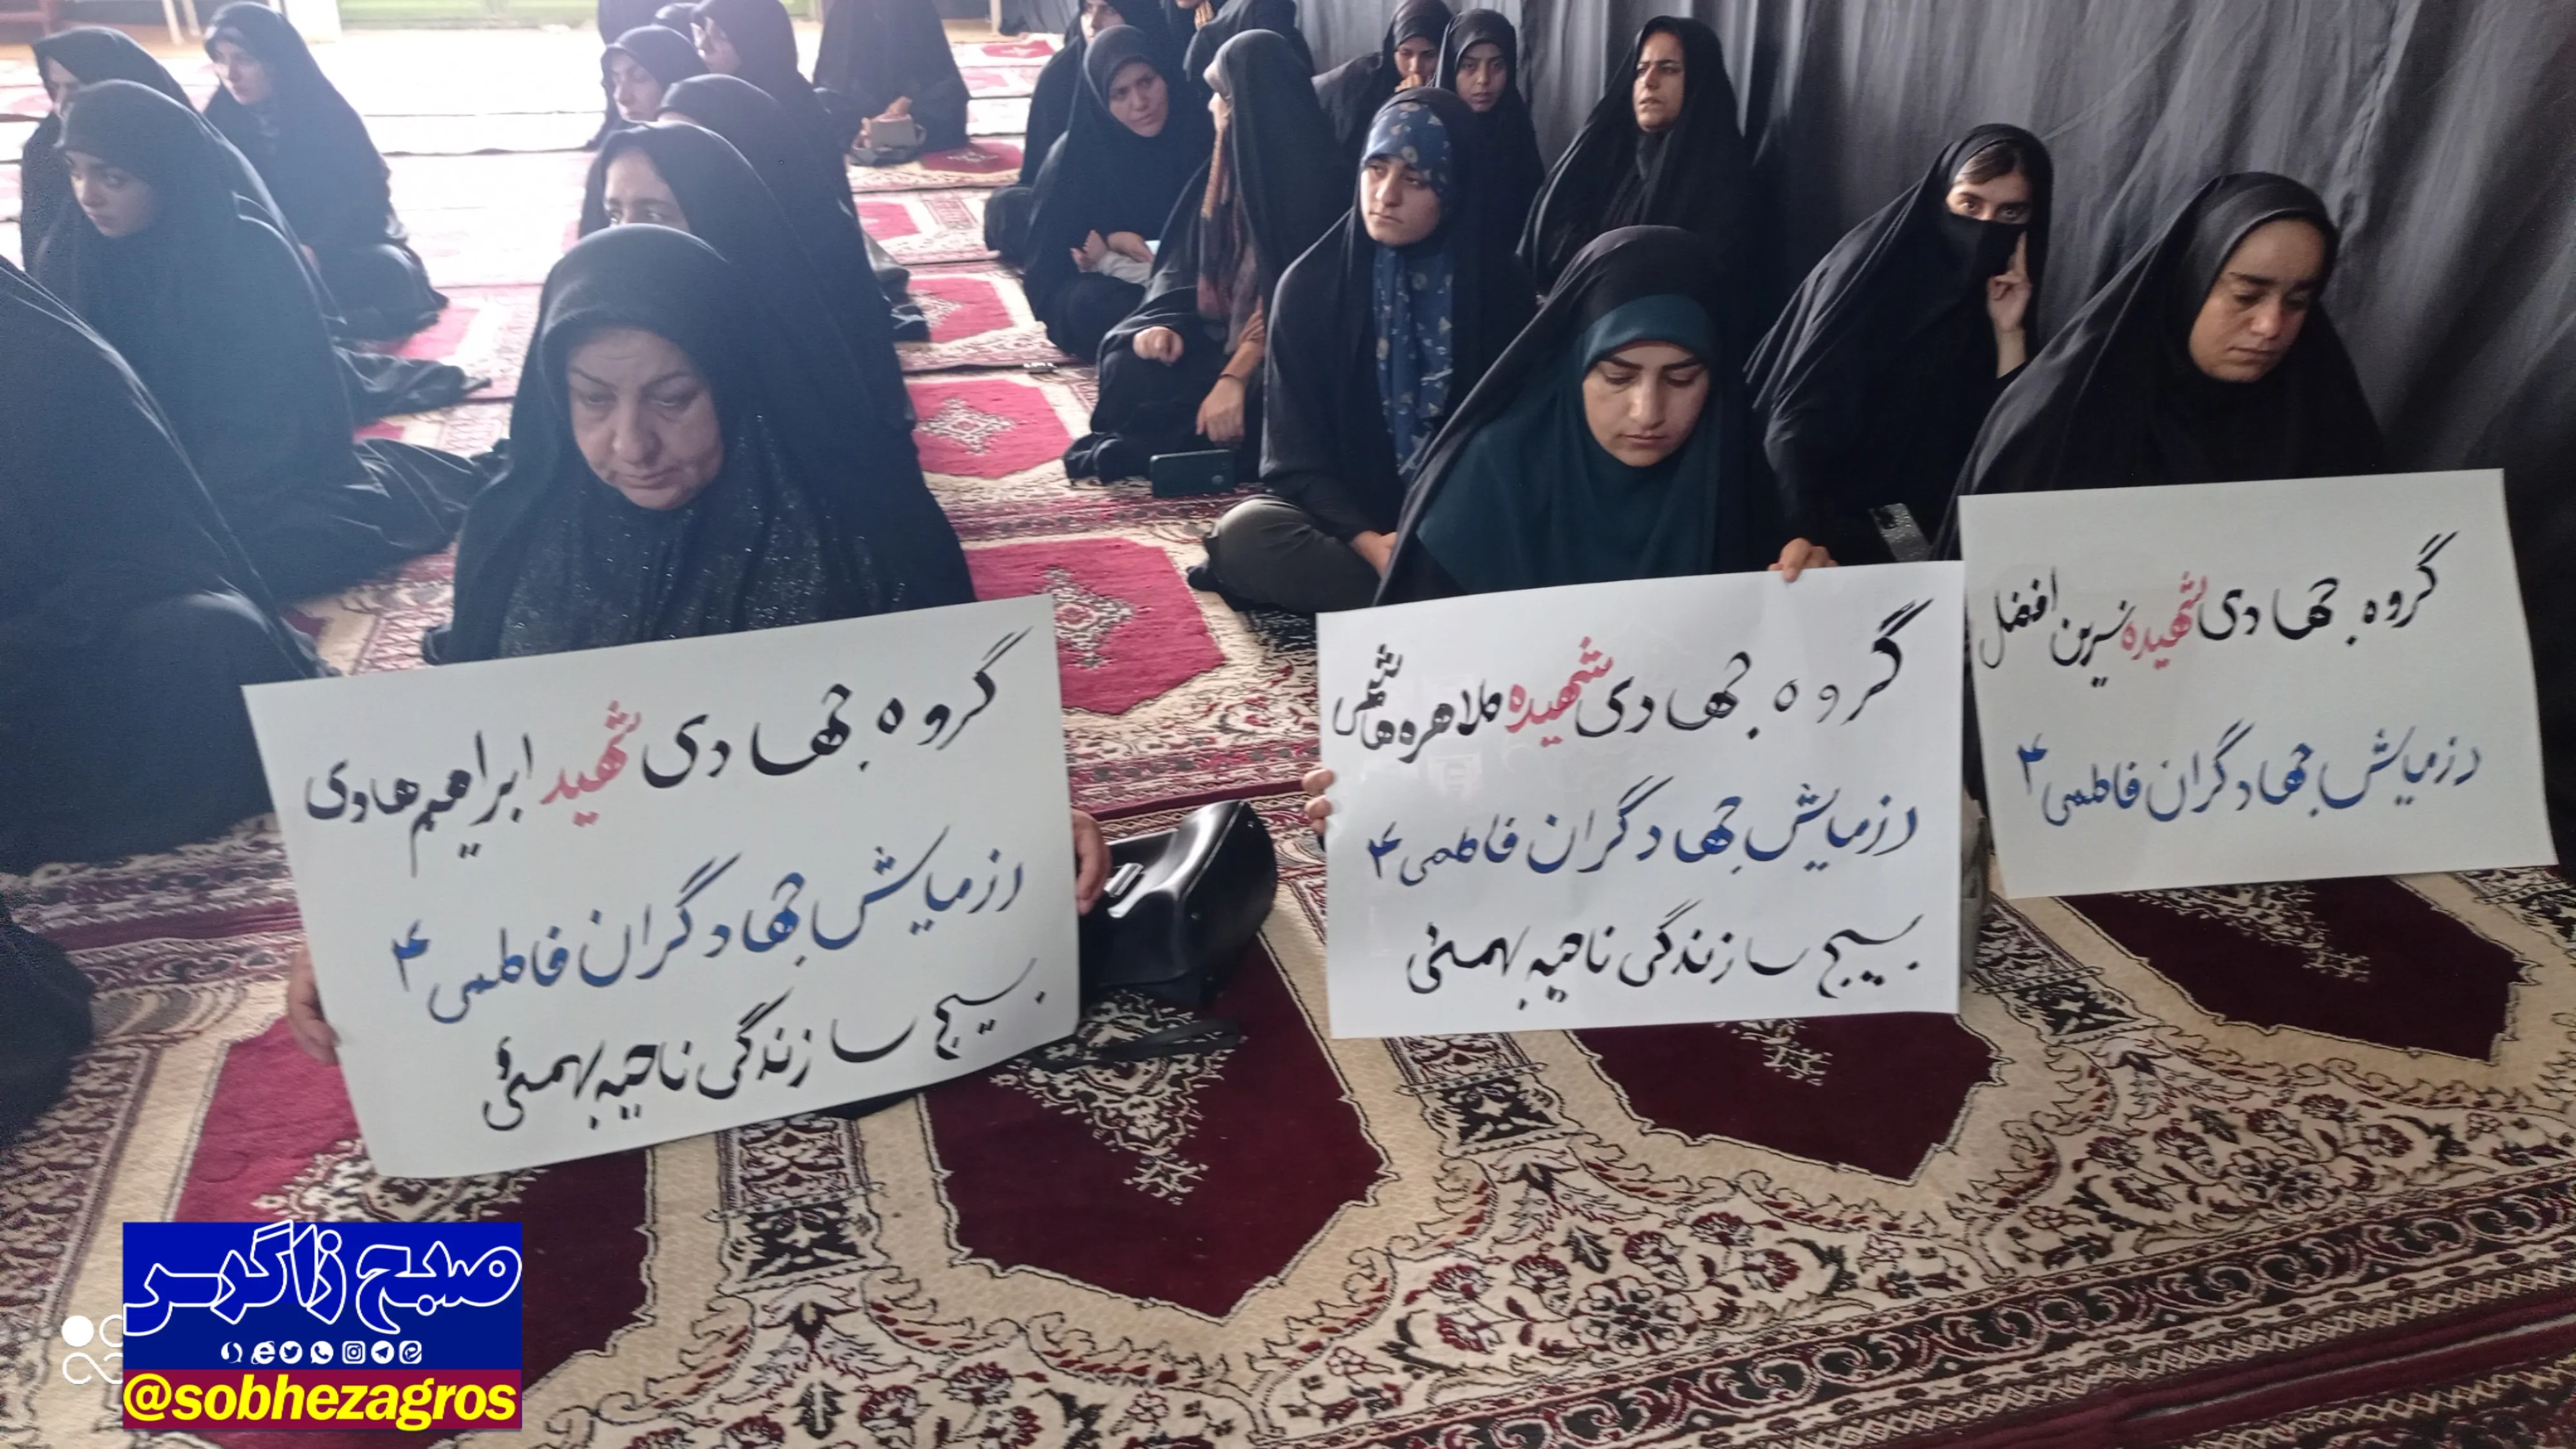 گروه جهادی شهیده نسرین افضل
رزمایش جهادگران فاطمی ۴
گروه جهادی شهیده طاهره هاشمی
رزمایش جهادگران فاطمی ۴
بسیج سازندگی ناحیه بهمئی
گروه جهادی شهید ابراهیم هادی
رزمایش جهادگران فاطمی ۴
بسیج سازندگی ناحیه بهمئی
صبح زاگرس
@sobhezagros